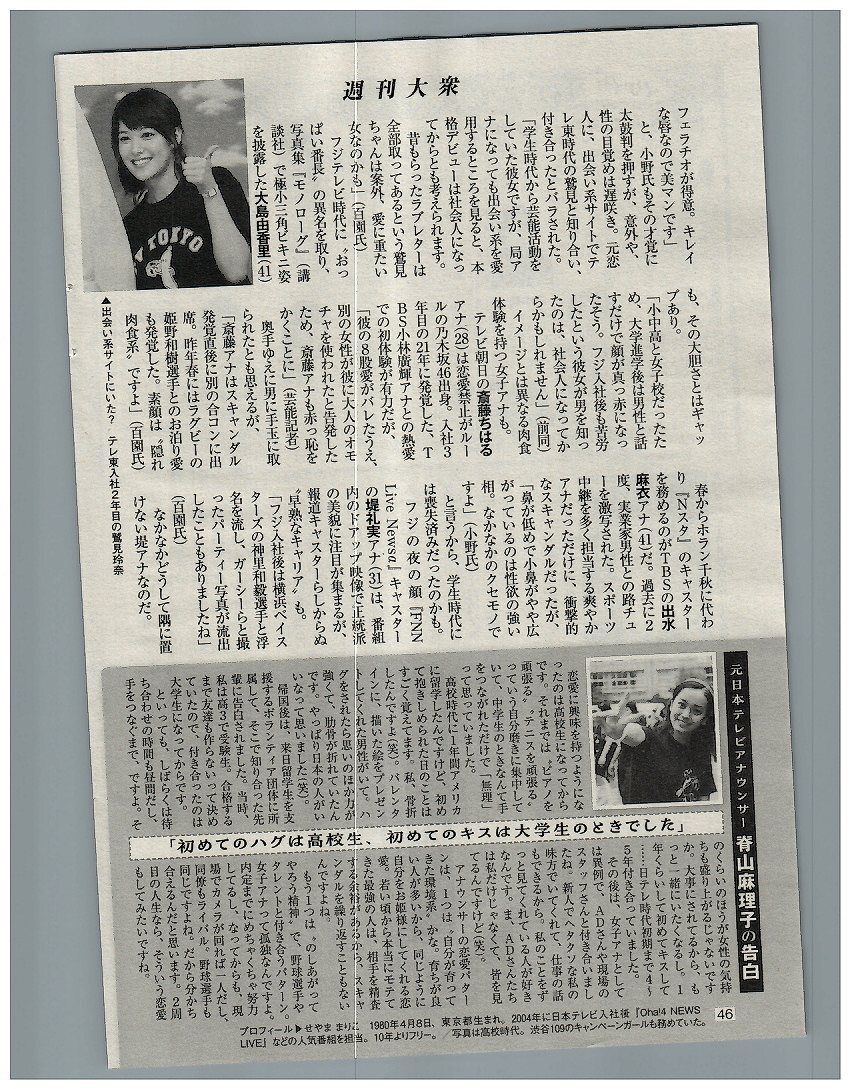 週刊大衆
フェラチオが得意。キレイ
な唇なので美マンです」
と、小野氏もその才覚に
太鼓判を押すが、意外や、
性の目覚めは遅咲き。元恋
人に、出会い系サイトでテ
レ東時代の鷲見と知り合い、
付き合ったとバラされた。
「学生時代から芸能活動を
していた彼女ですが、局ア
ナになっても出会い系を愛
用するところを見ると、本
格デビューは社会人になっ
てからとも考えられます。
昔もらったラブレターは
全部取ってあるという鷲見
ちゃんは案外、愛に重たい
女なのかも」(百園氏)
フジテレビ時代に〝おっ
ぱい番長〟の異名を取り、
写真集『モノローグ』(講
談社)で極小三角ビキニ姿
を披露した大島由香里(41)
TOKYO
▲出会い系サイトにいた? テレ東入社2年目の鷲見玲奈
も、その大胆さとはギャッ
プあり。
「小中高と女子校だったた
め、大学進学後は男性と話
すだけで顔が真っ赤になっ
たそう。フジ入社後も苦労
したという彼女が男を知っ
たのは、社会人になってか
らかもしれません」(前同)
イメージとは異なる肉食
体験を持つ女子アナも。
テレビ朝日の斎藤ちはる
アナ(28)は恋愛禁止がルー
ルの乃木坂46出身。入社3
年目の21年に発覚した、T
BS小林廣輝アナとの熱愛
での初体験が有力だが、
「彼の8股愛がバレたうえ、
別の女性が彼に大人のオモ
チャを使われたと告発した
ため、斎藤アナも赤っ恥を
かくことに」(芸能記者)
奥手ゆえに男に手玉に取
られたとも思えるが、
「斎藤アナはスキャンダル
発覚直後に別の合コンに出
席。昨年春にはラグビーの
姫野和樹選手とのお泊り愛
も発覚した。素顔は〝隠れ
肉食系〟ですよ」(百園氏)
春からホラン千秋に代わ
り『Nスタ』のキャスター
を務めるのがTBSの出水
麻衣アナ(41)だ。過去に2
度、実業家男性との路チュ
ーを激写された。スポーツ
中継を多く担当する爽やか
アナだっただけに、衝撃的
なスキャンダルだったが、
「鼻が低めで小鼻がやや広
がっているのは性欲の強い
相。なかなかのクセモノで
すよ」(小野氏)
と言うから、学生時代に
は喪失済みだったのかも。
フジの夜の顔『FNN
Live Newsα』キャスター
の堤礼実アナ(31)は、番組
内のドアップ映像で正統派
の美貌に注目が集まるが、
報道キャスターらしからぬ
〝早熟なキャリア〟も。
「フジ入社後は横浜ベイス
ターズの神里和毅選手と浮
名を流し、ガーシーらと撮
ったパーティー写真が流出
したこともありましたね」
(百園氏)
なかなかどうして隅に置
けない堤アナなのだ。
元日本テレビアナウンサー 脊山麻理子の告白
恋愛に興味を持つようにな
ったのは高校生になってから
です。それまでは〝ピアノを
頑張る〟〝テニスを頑張る〟
っていう自分磨きに集中して
いて、中学生のときなんて手
をつながれただけで「無理」
って思っていました。
高校時代に1年間アメリカ
に留学したんですけど、初め
て抱きしめられた日のことは
すごく覚えてます。私、骨折
したんですよ(笑)。バレンタ
インに、描いた絵をプレゼン
トしてくれた男性がいて。ハ
グをされたら思いのほか力が
強くて、肋骨が折れていたん
です。やっぱり日本の人がい
いなって思いました(笑)。
帰国後は、来日留学生を支
援するボランティア団体に所
属して、そこで知り合った先
輩に告白されました。当時、
私は高3で受験生。合格する
まで友達も作らないって決め
ていたので、付き合ったのは
大学生になってからです。
といっても、しばらくは待
ち合わせの時間も昼間だし、
手をつなぐまで、ですよ。そ
「初めてのハグは高校生、初めてのキスは大学生のときでした」
のくらいのほうが女性の気持
ちも盛り上がるじゃないです
か。大事にされてるから、も
っと一緒にいたくなるし。1
年くらいして初めてキスして
……日テレ時代初期まで4〜
5年付き合っていました。
その後は、女子アナとして
は異例で、ADさんや現場の
スタッフさんと付き合いまし
たね。新人でヘタクソな私の
味方でいてくれて、仕事の話
もできるから。私のことをず
っと見てくれている人が好き
なんです。ま、ADさんたち
は私だけじゃなくて、皆を見
てるんですけど(笑)。
アナウンサーの恋愛パター
ンは、1つは〝自分が育って
きた環境系〟かな。育ちが良
い人が多いから、同じように
自分をお姫様にしてくれる恋
愛。若い頃から本当にモテて
きた最強の人は、相手を精査
する余裕があるから、スキャ
ンダルを繰り返すこともない
んですよね。
もう1つは〝のしあがって
やろう精神〟で、野球選手や
タレントと付き合うパターン。
女子アナって孤独なんですよ。
内定までにめちゃくちゃ努力
してるし、なってからも、現
場でカメラが回れば一人だし、
同僚もライバル。野球選手も
同じですよね。だから分かち
合えるんだと思います。2周
目の人生なら、そういう恋愛
もしてみたいですね。
プロフィール▶せやま まりこ 1980年4月8日、東京都生まれ。2004年に日本テレビ入社後『Oha!4 NEWS
LIVE』などの人気番組を担当。10年よりフリー。/写真は高校時代。渋谷109のキャンペーンガールも務めていた。
46